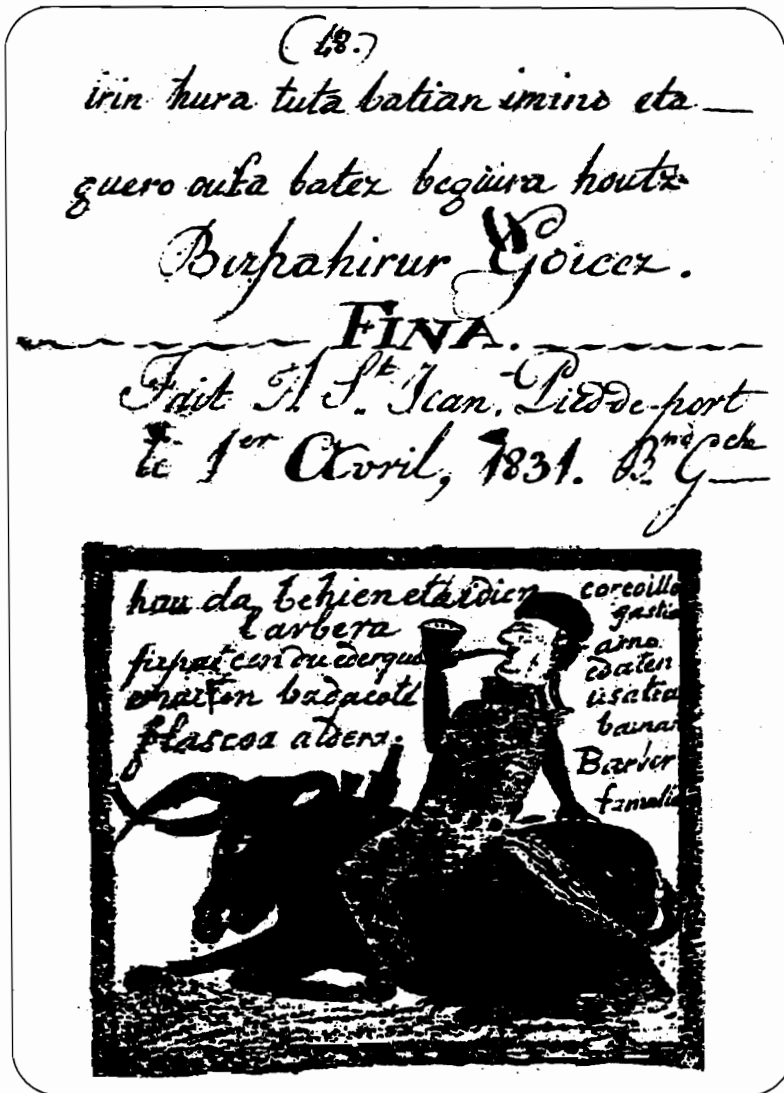 (48.)
irin hura tuta batian imino eta
guero oufa batez beguira houtz=
Birpahirur Goicez.
FINA.
Fait A St. Jean-Piedde-port
le 1er Avril, 1831. Bnd Gche
hau da behien eta idien
barbera
eman badacote
flascoa aldera.
corcoillo
gastia
arno
edaten
usatia
bainan
Barber
famatia